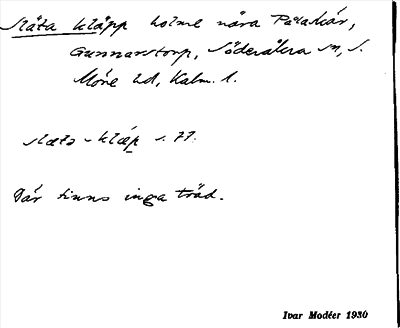 Släta kläpp holme nära
Gunnarstorp, Söderåkra sn, S.
Möre hd, Kalm. l.
slæta-klæp s. 77.
Där finns inga träd.
Ivar Modéer 1930